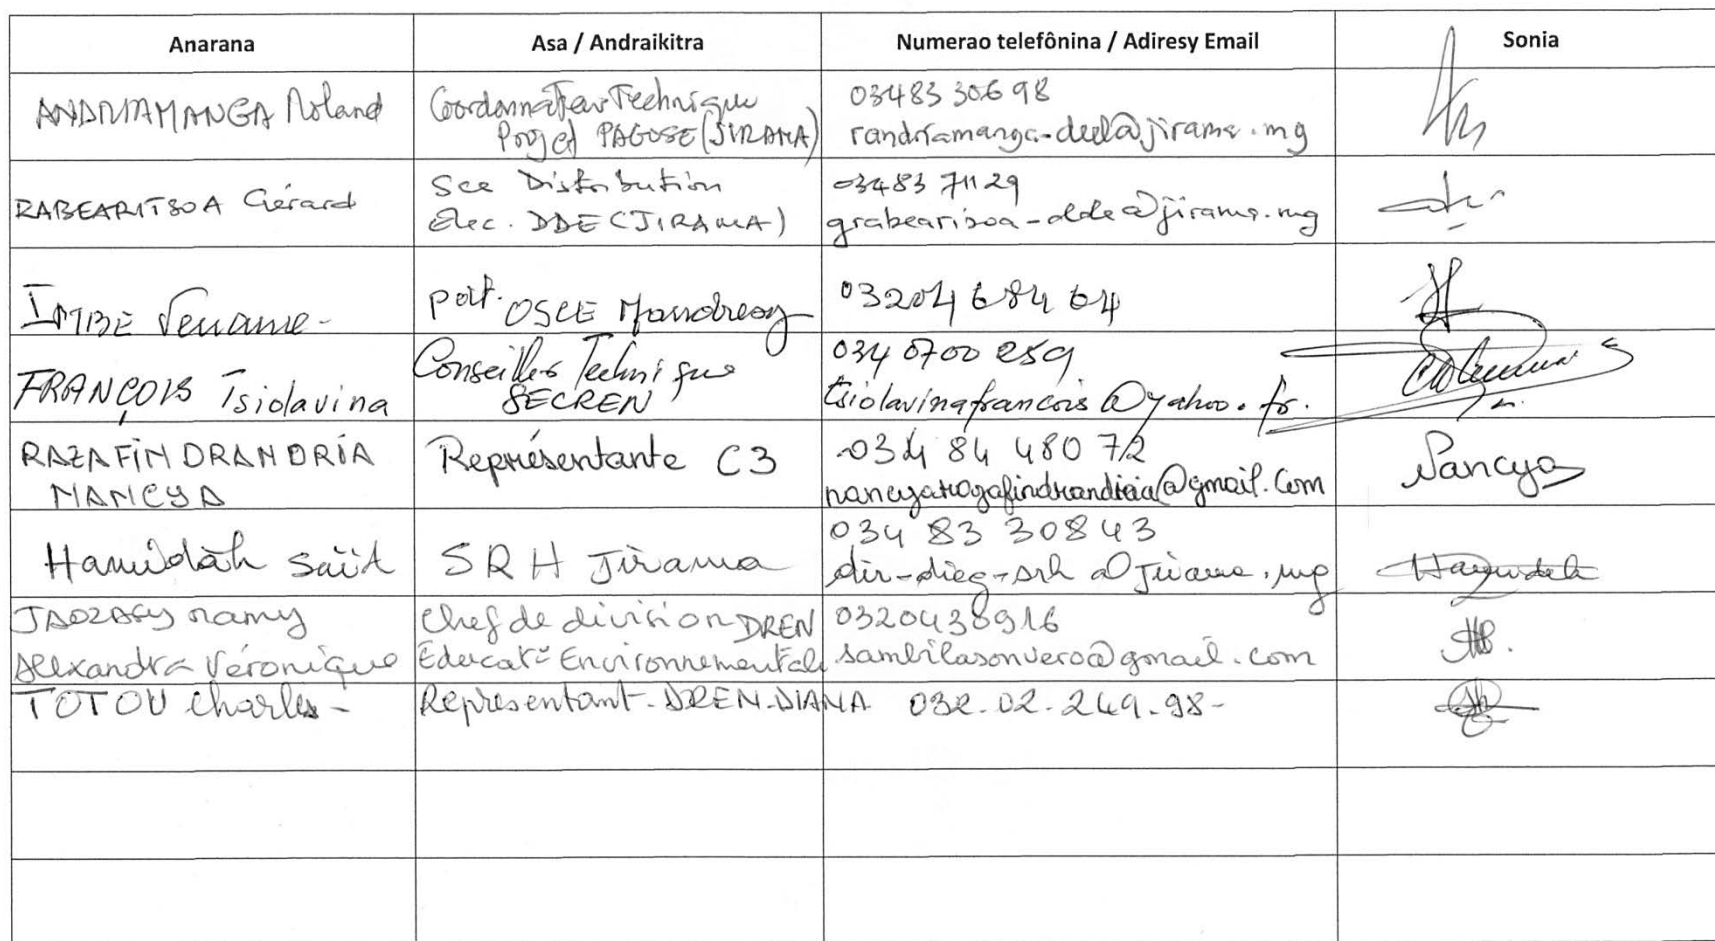 Anarana Asa / Andraikitra Numerao telefônina / Adiresy Email Sonia
ANDRIAMANGA Roland
Coordonnateur Technique
Projet PAGOSE (JIRAMA)
03483 306 98
randriamanga-deel@jirama.mg
RABEARITSOA Gérard
Sce Distribution
Elec. DDE (JIRAMA)
03483 711 29
grabearisoa-dde@jirama.mg
IMBE
OSCE
03204 684 64
FRANÇOIS Tsiolavina
Conseiller Technique
SECREN
034 0700 259
tsiolavinafrancois@yahoo.fr.
RAZAFINDRANDRIA
NANCYA
Représentante C3
034 84 480 72
nancyarazafindrandria@gmail.com
Nancya
Hamidah Saïd
SRH Jirama
034 83 30843
dir-dieg-srh@Jirama.mg
JAOZASY ramy
Alexandra Véronique
Chef de division DREN
Educat° Environnementale
0320438916
sambilasonvero@gmail.com
TOTOU Charles -
Représentant-DREN-DIANA
032.02.249.98-